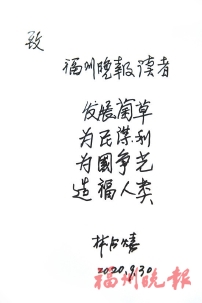 致
福州晚报读者
发展菌草
为民谋利
为國争光
造福人类
林占熺
2020.9.30
福州晚报